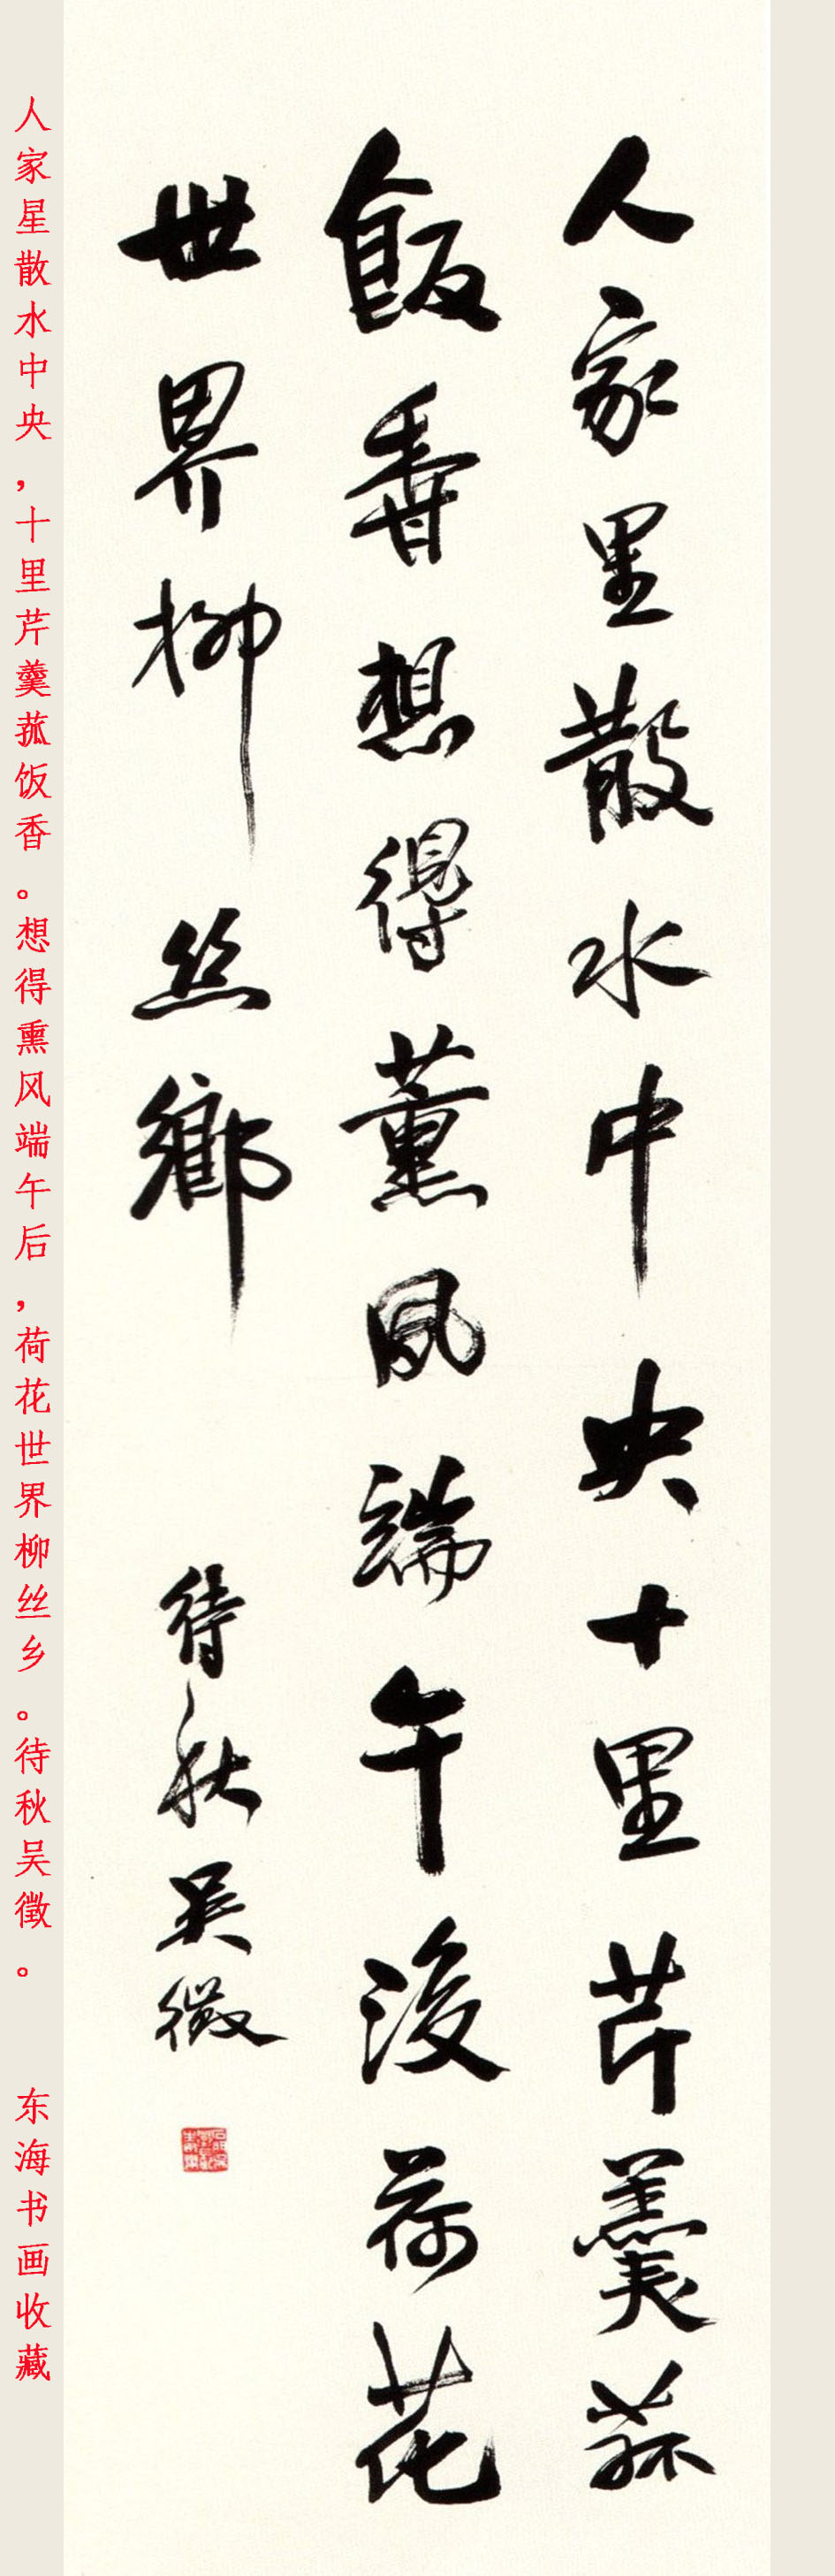 人家星散水中央十里芹羹菰
飯香想得薰風端午後荷花
世界柳丝鄉
待秋吳徵
人家星散水中央,十里芹羹菰饭香。想得熏风端午后,荷花世界柳丝乡。待秋吴徵。
东海书画收藏